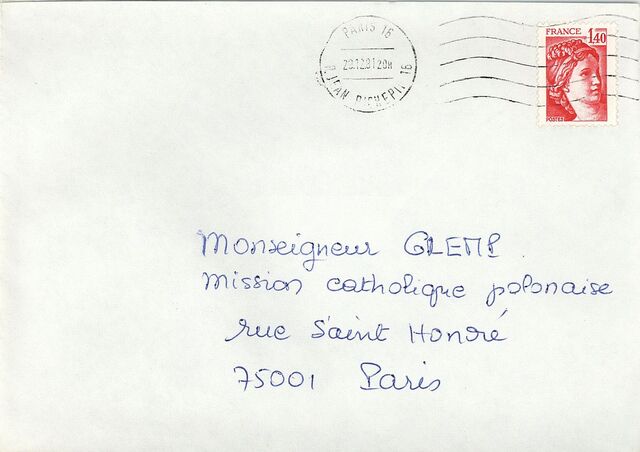 PARIS 16
28.12.81 20H
R. JEAN RICHEPIN 16
FRANCE 1,40
POSTES
Monseigneur GLEMP
Mission catholique polonaise
rue Saint Honoré
75001 Paris